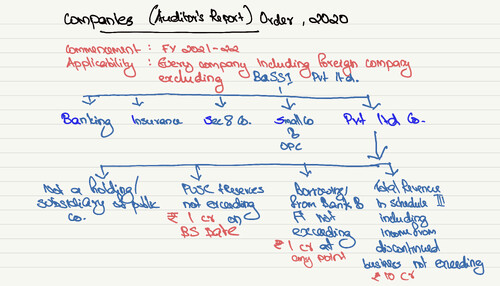 Companies (Auditor's Report) Order, 2020
Commencement : FY 2021-222
Applicability : Every company including foreign company
excluding BaSSI Pvt ltd.
Banking Insurance Sec 8 Co. Small Co Pvt ltd Co.
&
OPC
Not a holding/
subsidiary of public
co.
PUSC + Reserves
not exceeding
₹ 1 cr on
BS Date
Borrowing
from Bank &
FI not
exceeding
₹ 1 cr at
any point
Total Revenue
in schedule III
including
income from
discontinued
business not exceeding
₹ 10 cr